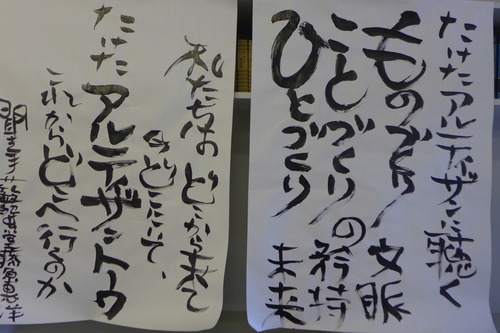 たけたアルティザンに聴く
ものづくり 文脈
ことづくり の矜持
ひとづくり 未来
私たちは どこから来て
のどこにいて、
たけた アルティザントウ
これからどこへ行のか